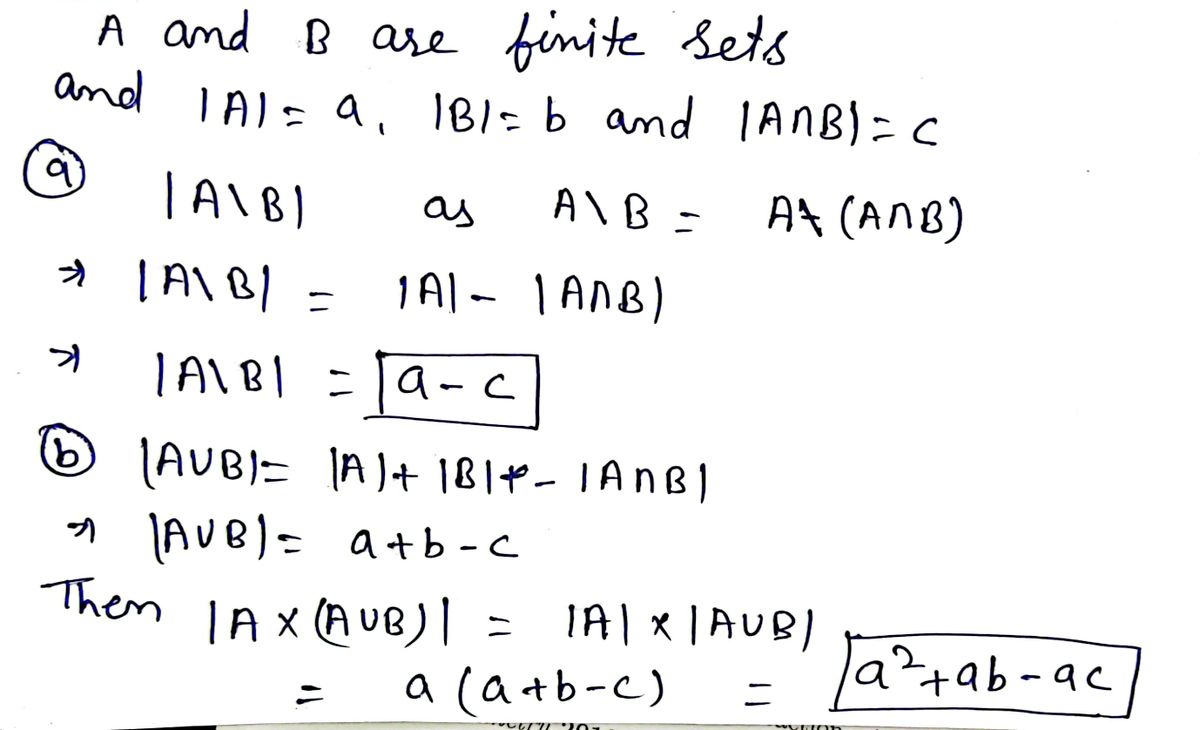 A and B are finite sets
and |A| = a, |B| = b and |A∩B| = c
(a) |A\B| as A\B = A\ (A∩B)
⇒ |A\B| = |A| - |A∩B|
⇒ |A\B| = a - c
(b) |A∪B| = |A| + |B| - |A∩B|
⇒ |A∪B| = a + b - c
Then |A × (A∪B)| = |A| × |A∪B|
= a (a+b-c) = a²+ab-ac